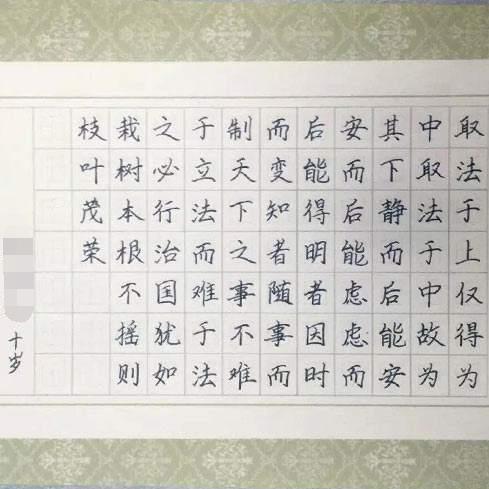 取法于上仅得为
中取法于中故为
其下静而后能安
安而后能虑虑而
后能得明者因时
而变知者随事而
制天下之事不难
于立法而难于法
之必行治国犹如
栽树本根不摇则
枝叶茂荣
十岁